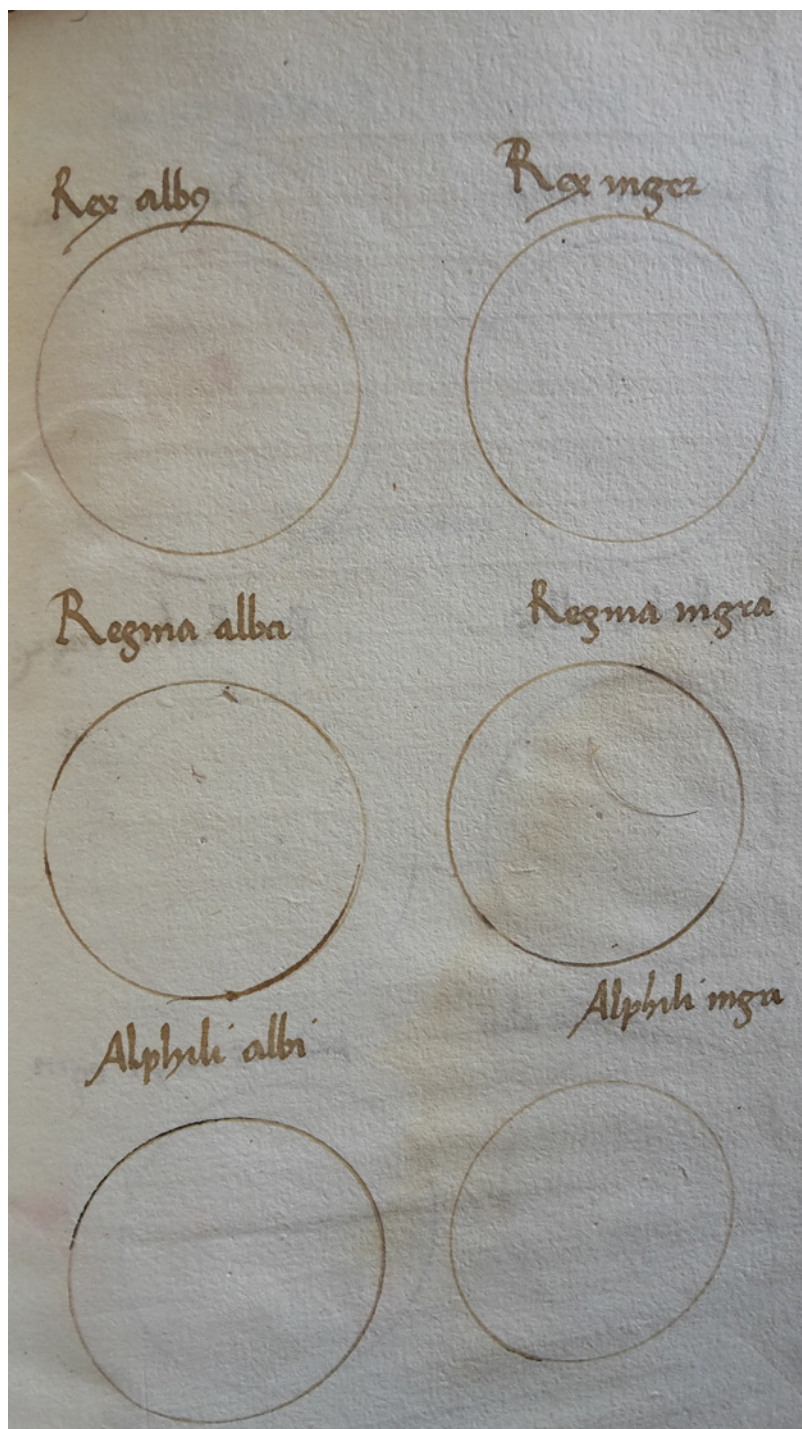 Rex albꝰ
Rex niger
Regina alba
Regina nigra
Alphili albi
Alphili nigri